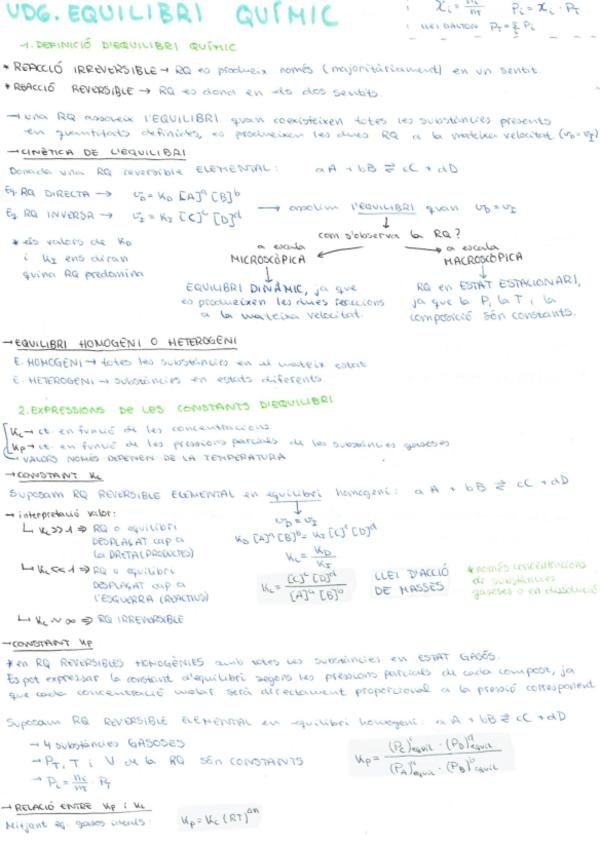 UD6. EQUILIBRI QUÍMIC
χi = ni/nT Pi = χi · PT
LLEI DALTON PT = Σ Pi
1. DEFINICIÓ D'EQUILIBRI QUÍMIC
* REACCIÓ IRREVERSIBLE → RQ es produeix només (majoritàriament) en un sentit.
* REACCIÓ REVERSIBLE → RQ es dona en els dos sentits.
→ una RQ assoleix l'EQUILIBRI quan coexisteixen totes les substàncies presents
en quantitats definides, es produeixen les dues RQ a la mateixa velocitat (vD = vI)
→ CINÈTICA DE L'EQUILIBRI
Donada una RQ reversible ELEMENTAL: aA + bB ⇄ cC + dD
Eq RQ DIRECTA → vD = KD [A]^a [B]^b
Eq RQ INVERSA → vI = KI [C]^c [D]^d → assolim l'EQUILIBRI quan vD = vI
* els valors de KD
i KI ens diran
quina RQ predomina
com s'observa la RQ?
a escala
MICROSCÒPICA
EQUILIBRI DINÀMIC, ja que
es produeixen les dues reaccions
a la mateixa velocitat.
a escala
MACROSCÒPICA
RQ en ESTAT ESTACIONARI,
ja que la P, la T i la
composició són constants.
→ EQUILIBRI HOMOGENI O HETEROGENI
E. HOMOGENI → totes les substàncies en el mateix estat
E. HETEROGENI → substàncies en estats diferents
2. EXPRESSIONS DE LES CONSTANTS D'EQUILIBRI
Kc → ct. en funció de les concentracions
Kp → ct. en funció de les pressions parcials de les substàncies gasoses
→ VALORS NOMÉS DEPENEN DE LA TEMPERATURA
→ CONSTANT Kc
Suposam RQ REVERSIBLE ELEMENTAL en equilibri homogeni: aA + bB ⇄ cC + dD
→ interpretació valor:
↳ Kc >> 1 → RQ o equilibri
DESPLAÇAT cap a
la DRETA (PRODUCTES)
↳ Kc << 1 → RQ o equilibri
DESPLAÇAT cap a
l'ESQUERRA (REACTIUS)
↳ Kc ~ ∞ → RQ IRREVERSIBLE
vD = vI
KD [A]^a [B]^b = KI [C]^c [D]^d
Kc = KD/KI
Kc = [C]^c [D]^d / [A]^a [B]^b
LLEI D'ACCIÓ
DE MASSES
* només concentracions
de substàncies
gasoses o en dissolució
→ CONSTANT Kp
* en RQ REVERSIBLES HOMOGÈNIES amb totes les substàncies en ESTAT GASÓS.
Es pot expressar la constant d'equilibri segons les pressions parcials de cada compost, ja
que cada concentració molar serà directament proporcional a la pressió corresponent
Suposam RQ REVERSIBLE ELEMENTAL en equilibri homogeni: aA + bB ⇄ cC + dD
→ 4 substàncies GASOSES
→ PT, T i V de la RQ SÓN CONSTANTS
→ Pi = ni/nT · PT
Kp = (PC)^c equil · (PD)^d equil / (PA)^a equil · (PB)^b equil
→ RELACIÓ ENTRE Kp i Kc
Mitjant eq. gasos ideals: Kp = Kc (RT)^Δn